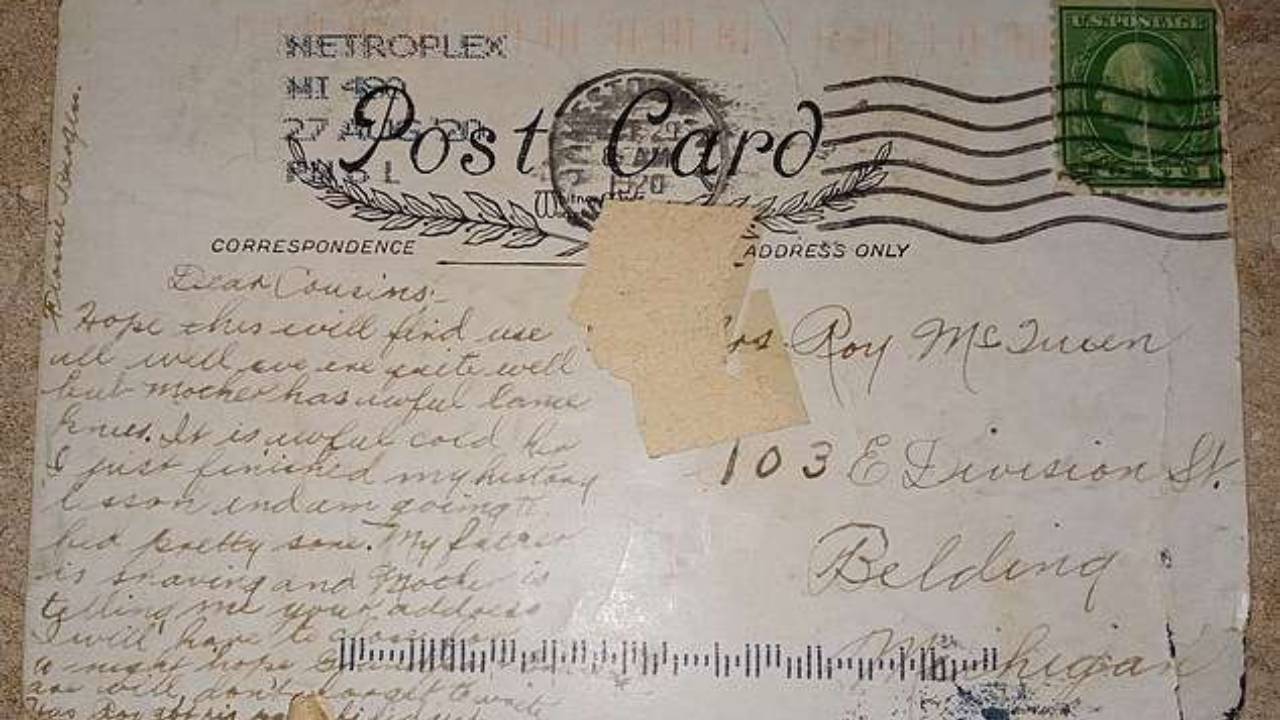 METROPLEX
MI 480
27 AUG '20
PM 5 L
U.S. POSTAGE
Post Card
29
8 AM
1920
CORRESPONDENCE
ADDRESS ONLY
Dear Cousins:-
Hope this will find use
all well we are quite well
but Mother has awful lame
knees. It is awful cold her
I just finished my history
lesson and am going t
bed pretty soon. My father
is shaving and Mother is
telling me your address
I will have to close for
a night hope
are well, don't forget to write
Roy
Mrs. Roy McQueen
103 E Division St.
Belding
Michigan